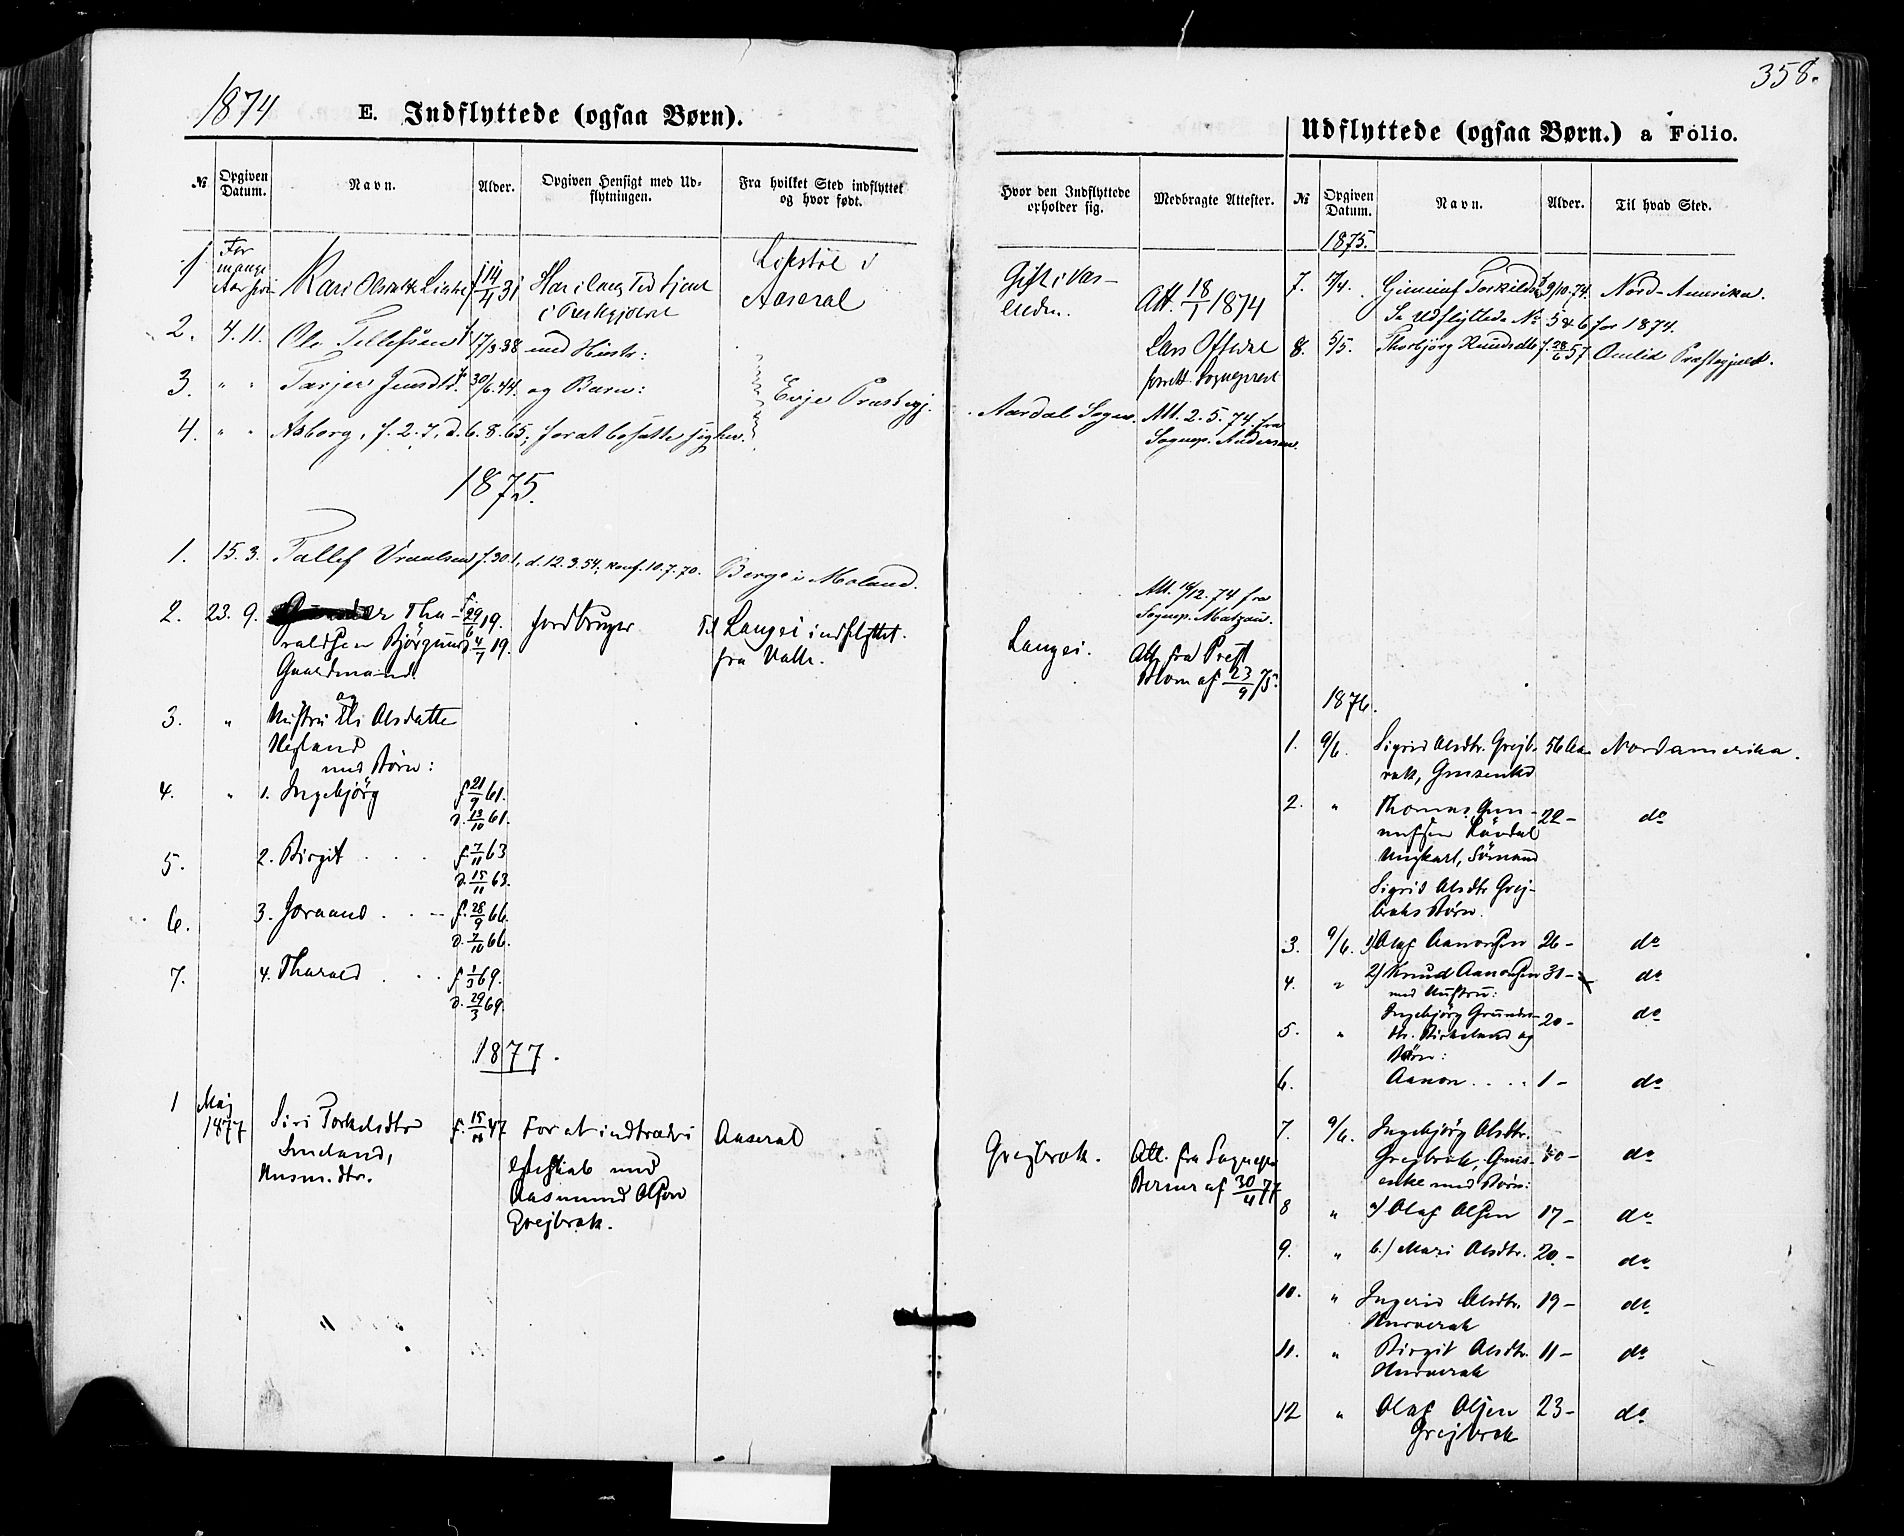 358.
1874
E. Indflyttede (ogsaa Børn).
Udflyttede (ogsaa Børn.) a Folio.
№
Opgiven Datum.
Navn.
Alder.
Opgiven Hensigt med Udflytningen.
Fra hvilket Sted indflyttet og hvor født.
Hvor den Indflyttede opholder sig.
Medbragte Attester.
1
For mange Aar siden
Kari
14/4 31
Har i lang Tid tjent
i Præstegjeldet
i
Aaseral
Gift i
Att. 18/1 1874
2. 4. 11. Ole Tellefsen f. 17/3 38 med Hustr:
Lars Oftedal
Sognepræst
3. " " Tarjer 30/6. 44. og Barn:
Evje Præstegj.
Aardal Sogn.
Att. 2. 5. 74. fra
Sognep. Andersen
4. " " Asborg, f. 2. 7, d. 6. 8. 65, for at bosætte sig her.
1875.
1. 15. 3. Tallef f. 30. 1, d. 12. 3. 54, konf. 10. 7. 70. Berge i Moland.
Att. 16/12. 74 fra
Sognep.
2. 23. 9. Gunder Tha-
raldsen Bjørgum
Gaardmand
f 29/6 19.
d 4/7 19.
Jordbruger
Til Langei indflyttet
fra Valle.
Langei.
Att. fra Præst
Blom af 23/9 75.
og
3. " Hustru Eli Olsdatte
Hegland
med Børn:
4. " 1. Ingebjørg f 21/9 61.
d. 13/10 61.
5. 2. Birgit . . . f. 7/11 63
d. 15/11 63.
6. 3. Joraand . . – f. 28/9 66.
d. 7/10 66.
7. 4. Tharald . . . f 1/3 69.
d. 29/3 69.
1877.
1 Maj
1877
Siri Torkelsdtr
Smeland,
Husm. dtr.
f. 15/11 47
For at indtræde i
Egteskab med
Aasmund Olsen
Grejbrok.
Aaseral
Grejbrok.
Att. fra Sognepr
Berner af 30/4 77
№
Opgiven Datum.
Navn.
Alder.
Til hvad Sted.
1875.
7. 17/4. Torkildsen 9/10. 74. Nord-Amerika.
Se Udflyttede No 5 & 6 for 1874.
8. 5/5. Thorbjørg Knudsdtr f. 28/6 57 Omlid Præstegjeld.
1876.
1. 9/6. Sigrid Olsdtr. Grejb-
rok, Gmsenke
56 Aar Nordamerika.
2. " Thomas Gun-
nufsen Løvdal
Ungkarl, Sømand
22 – do
Sigrid Olsdtr Grej-
broks Børn.
3. 9/6. 1) Olaf Aanonsen 26 – do
4. " 2) Knud Aanonsen 31 – do
med Hustru:
5. " Ingebjørg Gunders-
dtr. Birkeland og
Børn:
20 – do
6. Aanon . . . . 1 – do
7. 9/6. Ingebjørg Olsdtr.
Grejbrok, Gms-
enke med Børn:
do
8 " a) Olaf Olsen 17 – do
9. " b.) Mari Olsdtr. 20 – do
10. " Ingerid Olsdtr. 19 – do
11. " Birgit Olsdtr. 11 – do
12 " Olaf Olsen 23 – do
Grejbrok